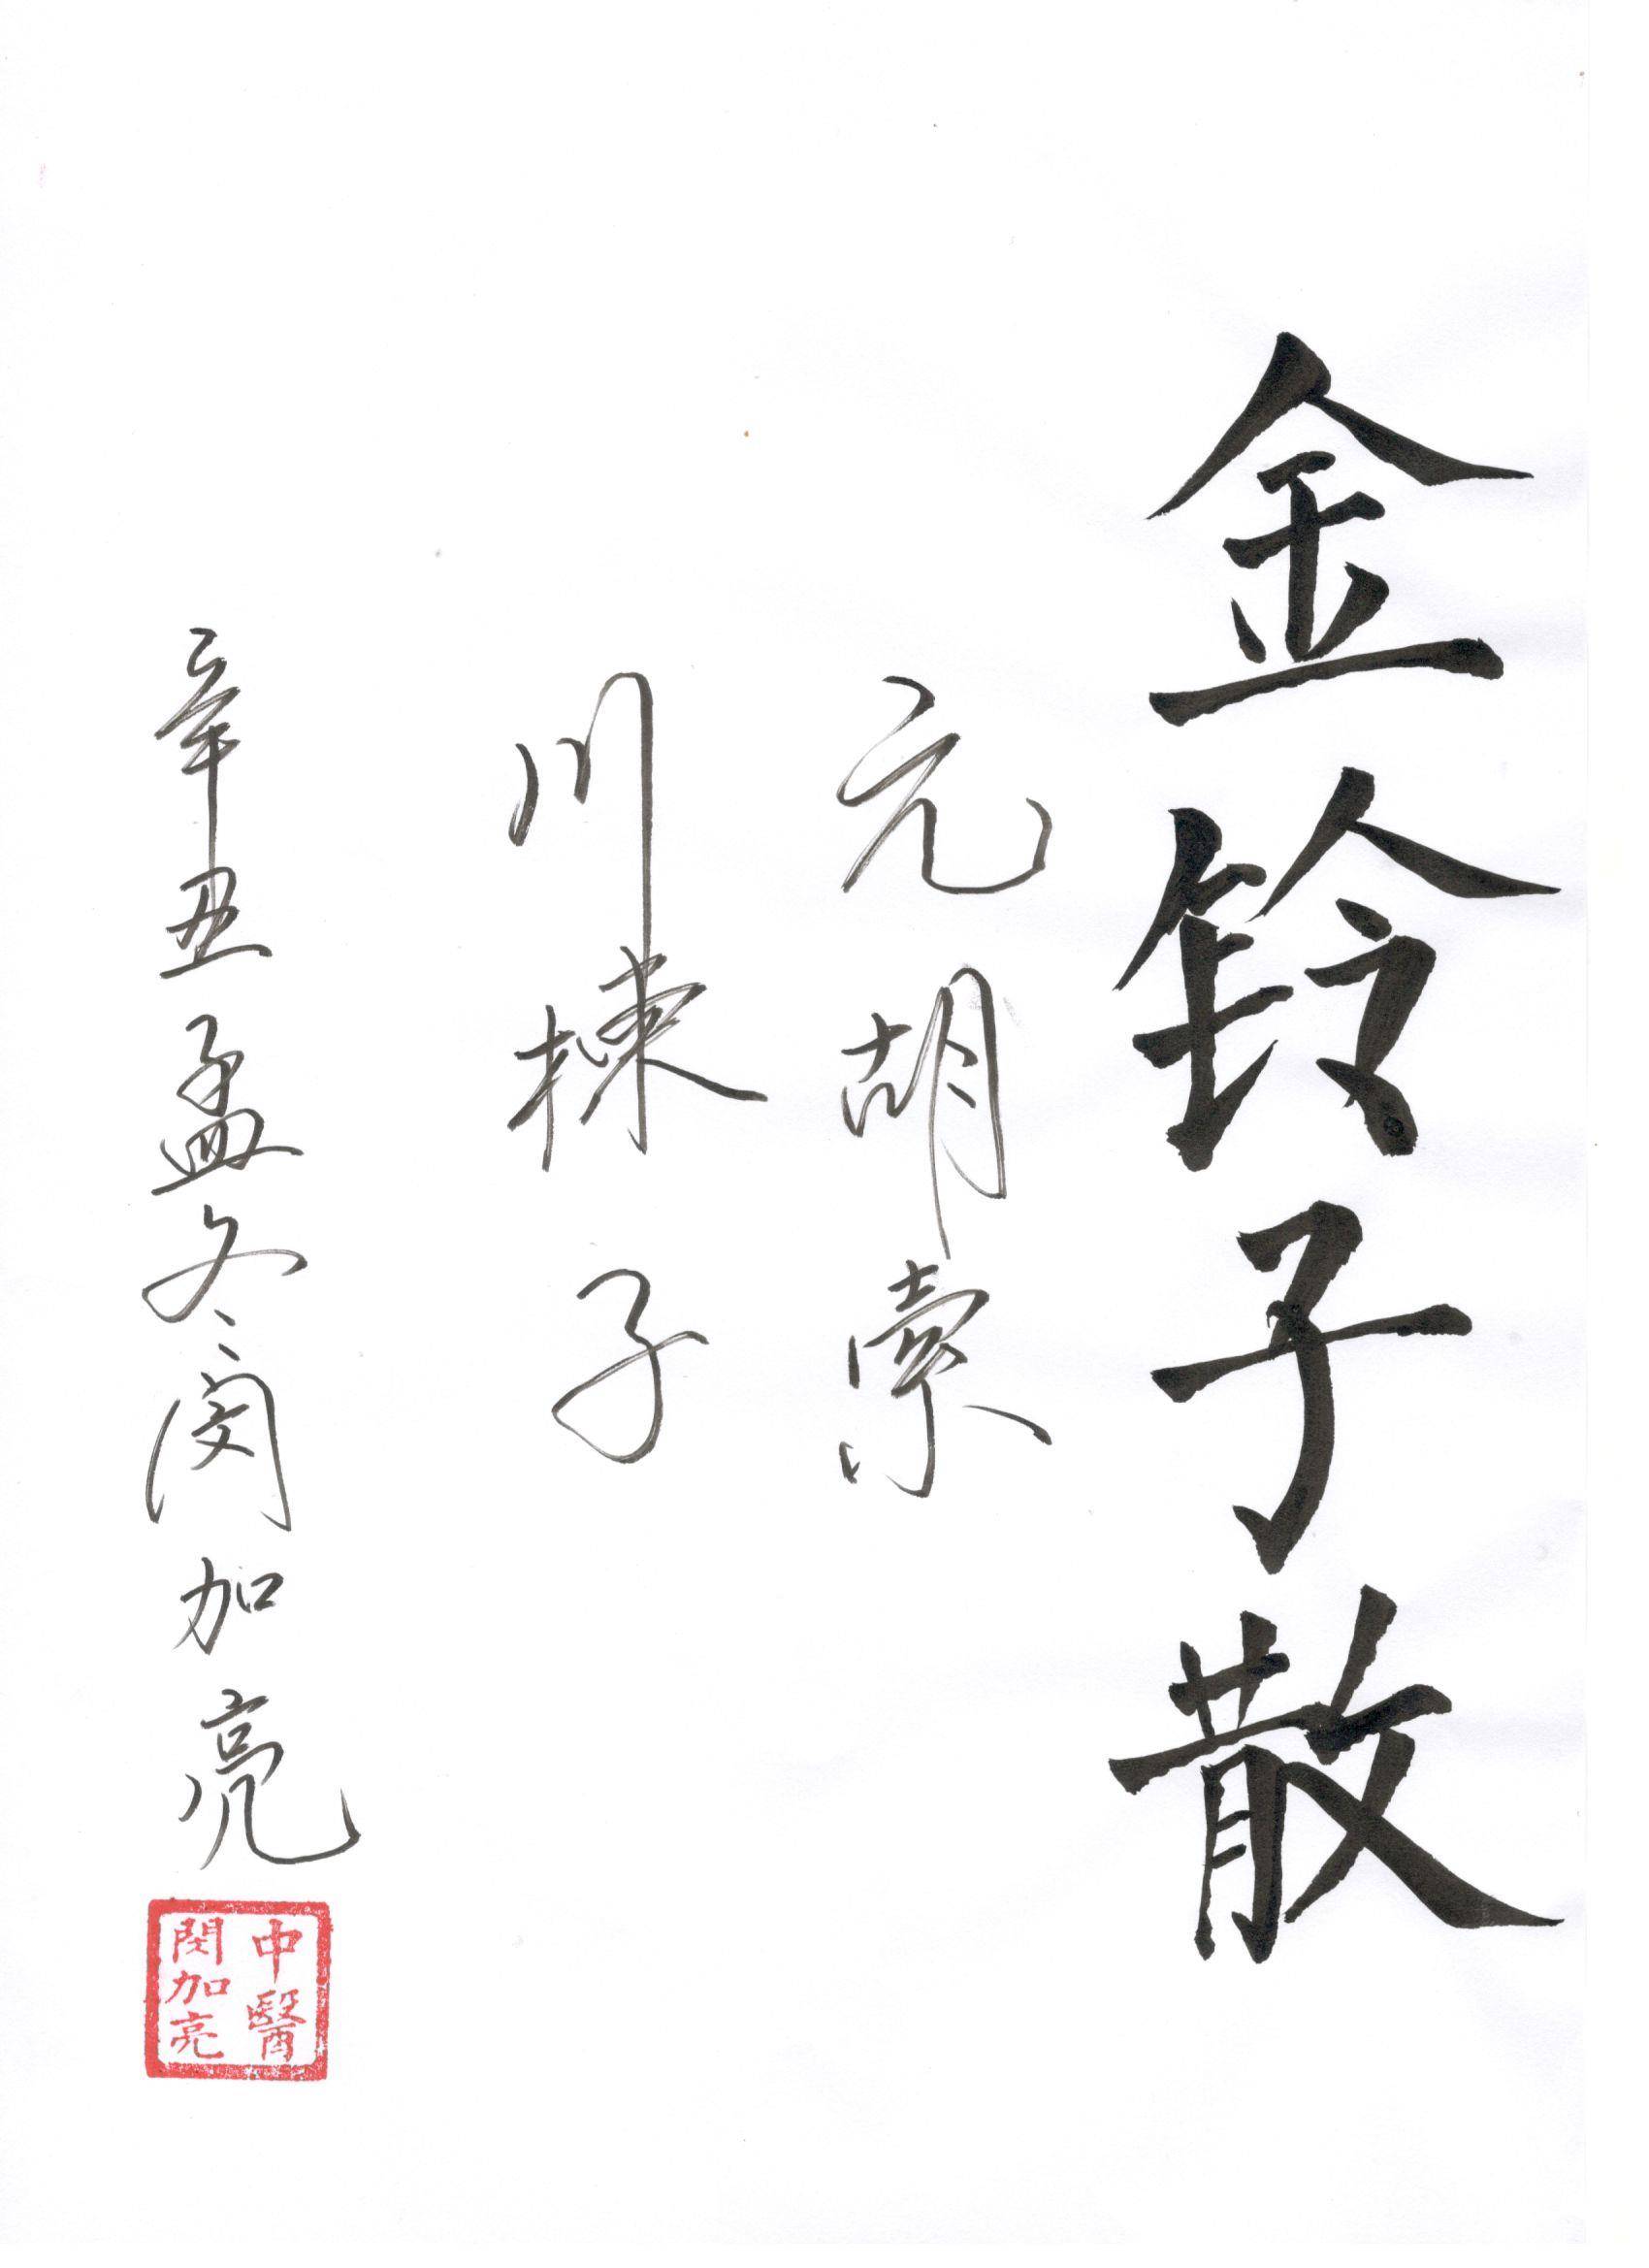 金铃子散
元胡索
川楝子
辛丑孟冬闵加亮
中醫
閔加亮